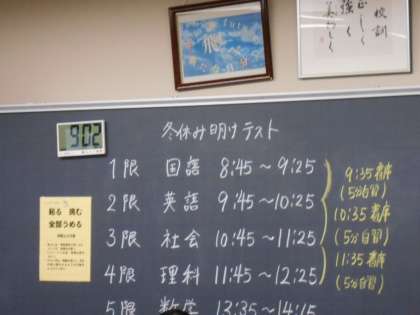 飛
校訓
正しく
強く
美しく
9:02
冬休み明けテスト
1限 国語 8:45～9:25
2限 英語 9:45～10:25
3限 社会 10:45～11:25
4限 理科 11:45～12:25
5限 数学 13:35～14:15
9:35着席
(5分自習)
10:35着席
(5分自習)
11:35着席
(5分自習)
粘る 挑む
全部うめる